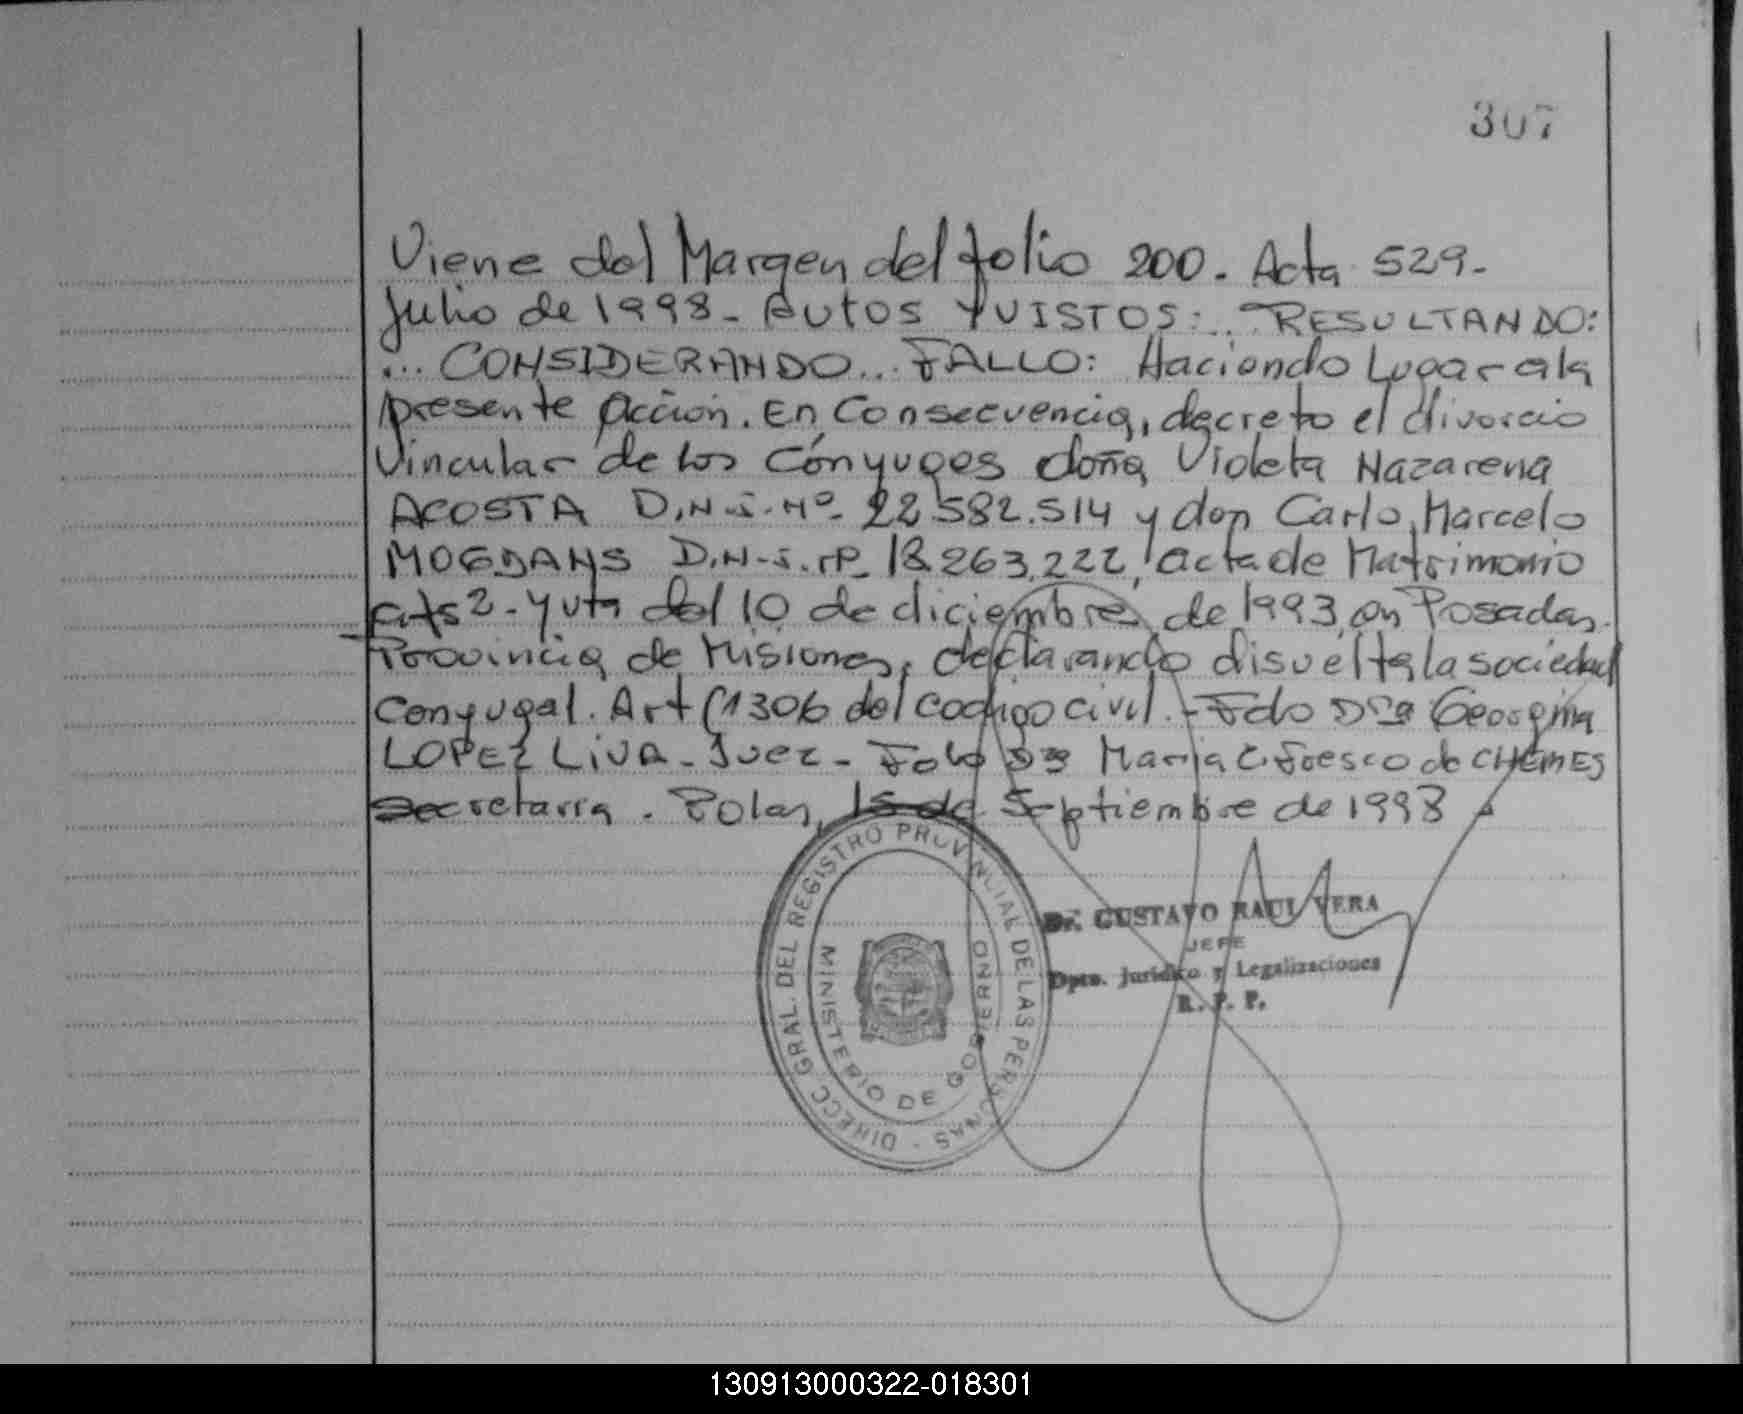 307
Viene del Margen del folio 200. Acta 529.
Julio de 1998 - AUTOS Y VISTOS:... RESULTANDO:
... CONSIDERANDO... FALLO: Haciendo Lugar a la
presente acción. En Consecuencia, decreto el divorcio
Vincular de los Cónyuges doña Violeta Nazarena
ACOSTA D.N.I. Nº 22.582.514 y don Carlo Marcelo
MOGDANS D.N.I. Nº 18.263.222, acta de Matrimonio
a fs 2 - y vta del 10 de diciembre de 1993, en Posadas.
Provincia de Misiones, declarando disuelta la sociedad
Conyugal. Art (1306 del codigo civil. - Fdo Dra Georgina
LOPEZ LIVA - Juez - Fdo Dra Maria C. Fresco de CHEMES
Secretaria. Pdas, 15 de Septiembre de 1998.
DIRECC GRAL. DEL REGISTRO PROVINCIAL DE LAS PERSONAS -
MINISTERIO DE GOBIERNO
Dr. GUSTAVO RAUL VERA
JEFE
Dpto. Jurídico y Legalizaciones
R. P. P.
130913000322-018301